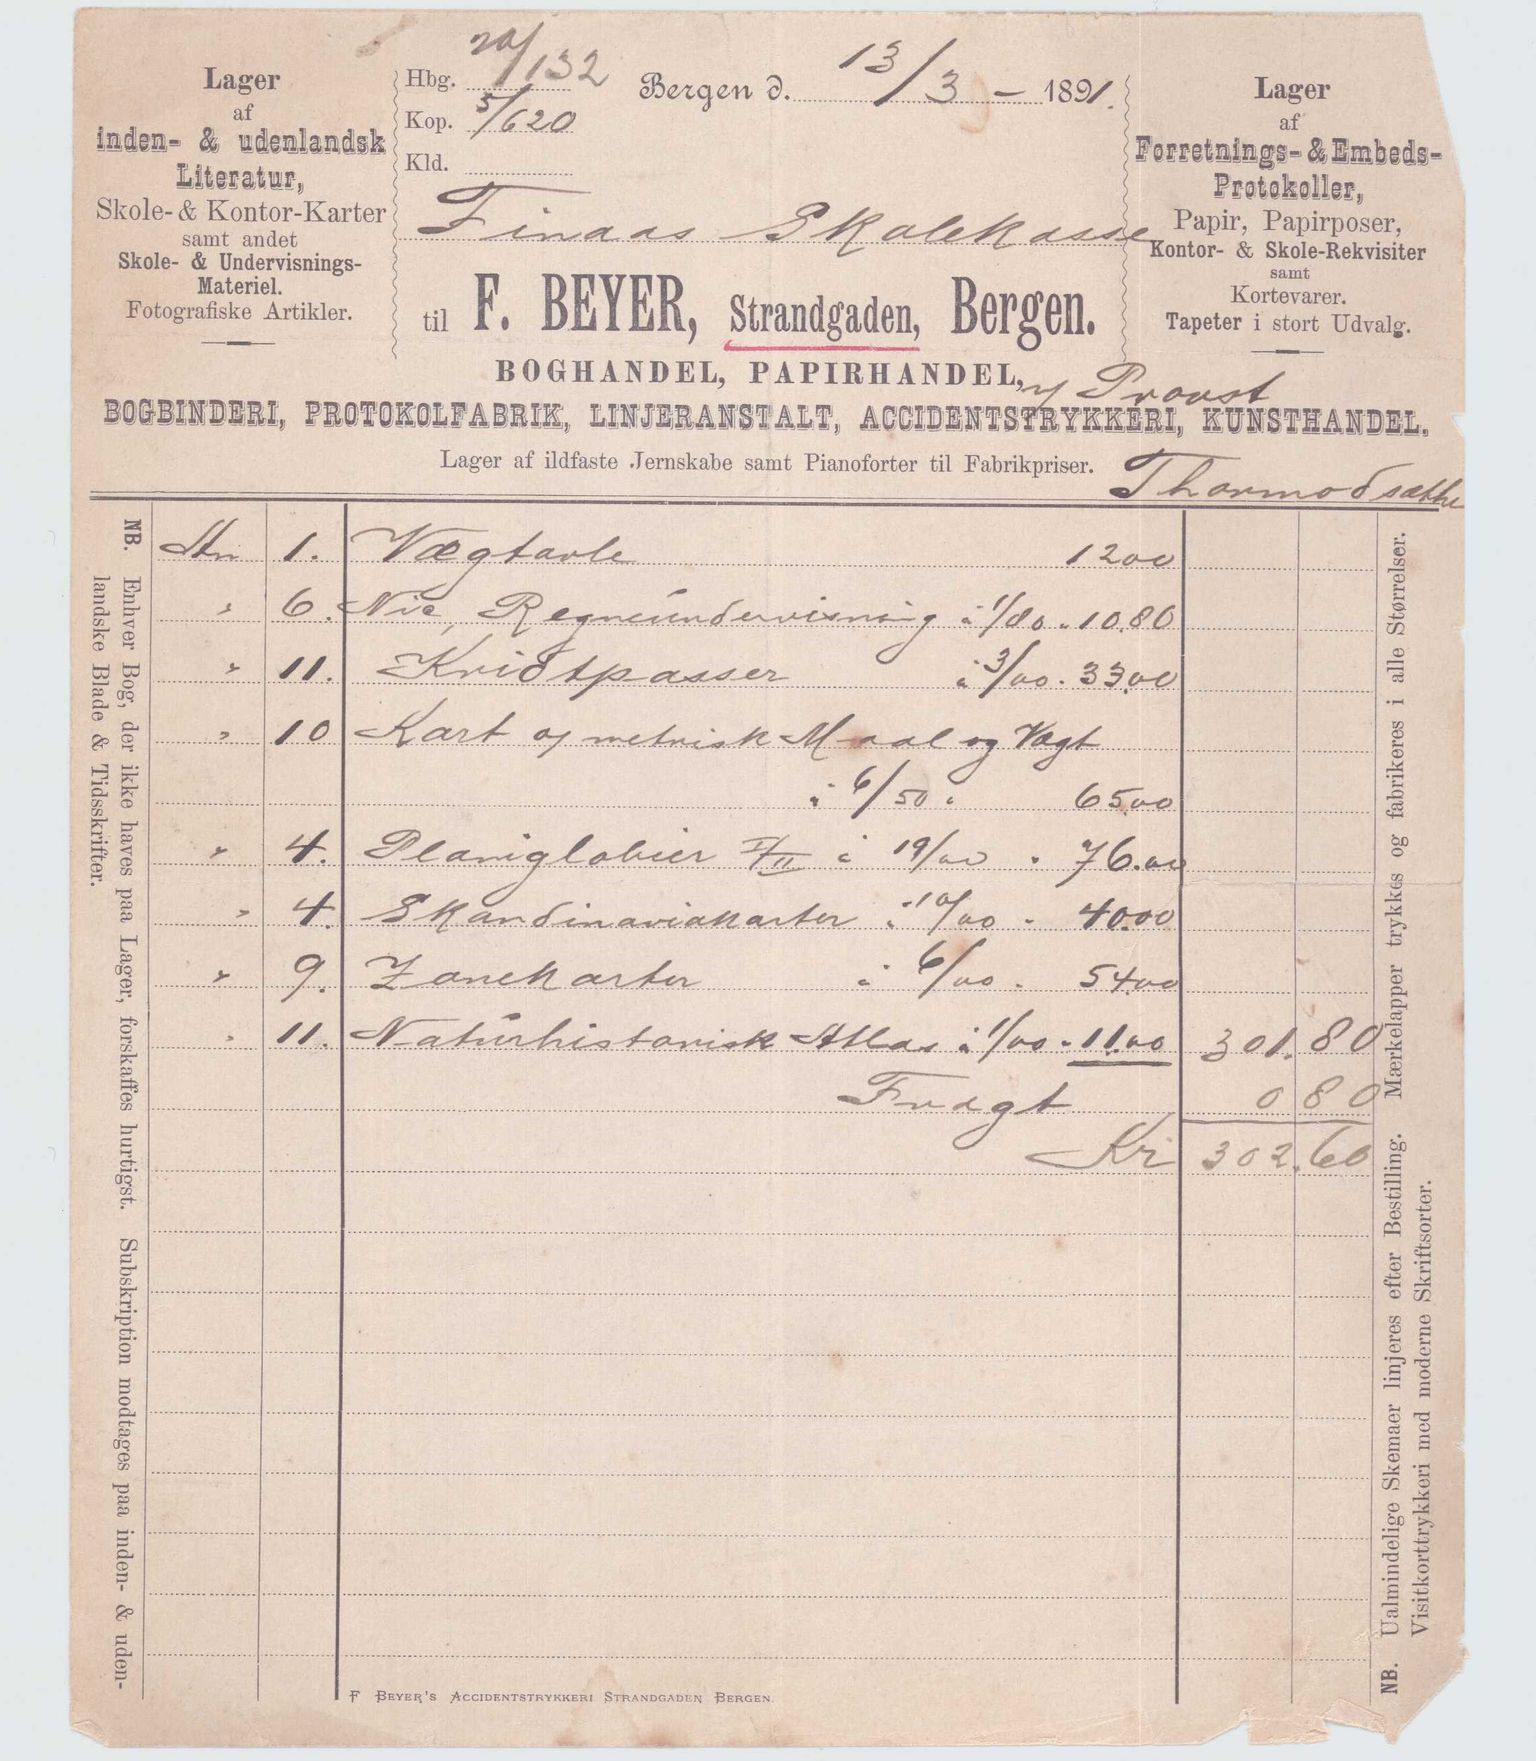 Lager
af
inden- & udenlandsk
Literatur,
Skole- & Kontor-Karter
samt andet
Skole- & Undervisnings-
Materiel.
Fotografiske Artikler.
Hbg. 20/132
Kop. 5/620
Kld.
Bergen d. 13/3 – 1891.
Lager
af
Forretnings- & Embeds-
Protokoller,
Papir, Papirposer,
Kontor- & Skole-Rekvisiter
samt
Kortevarer.
Tapeter i stort Udvalg.
Finaas Skolekasse
til F. BEYER, Strandgaden, Bergen.
BOGHANDEL, PAPIRHANDEL,
v/ Provst
BOGBINDERI, PROTOKOLFABRIK, LINJERANSTALT, ACCIDENTSTRYKKERI, KUNSTHANDEL.
Lager af ildfaste Jernskabe samt Pianoforter til Fabrikpriser.
Thormodsæther
An 1. Vægtavle 12 00
" 6. Nic, Regneundervisning à 1/80 " 10.80
" 11. Kridtpasser à 3/00 " 33.00
" 10 Kart og metrisk Maal og Vægt
à 6/50 " 65.00
" 4. Planiglobier I/II à 19/00 " 76.00
" 4. Skandinaviakarter à 10/00 " 40.00
" 9. Zonekarter à 6/00 " 54.00
" 11. Naturhistorisk Atlas à 1/00 " 11.00 301.80
Fragt 0 80
Kr 302.60
NB. Enhver Bog, der ikke haves paa Lager, forskaffes hurtigst. Subskription modtages paa inden- & uden-
landske Blade & Tidsskrifter.
NB. Ualmindelige Skemaer linjeres efter Bestilling. Mærkelapper trykkes og fabrikeres i alle Størrelser.
Visitkorttrykkeri med moderne Skriftsorter.
F BEYER'S ACCIDENTSTRYKKERI STRANDGADEN BERGEN.